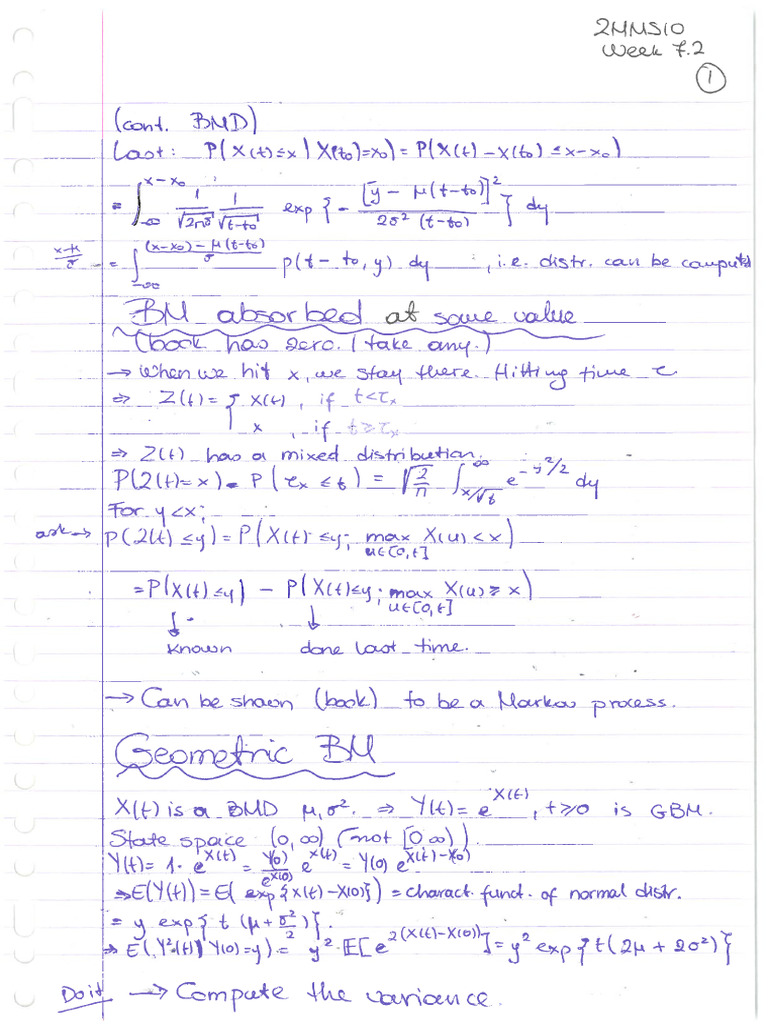 2MMS10
Week 7.2
1
(cont. BMD)
Last: P(X(t)≤x | X(t₀)=x₀) = P(X(t) - X(t₀) ≤ x-x₀)
= ∫_{-∞}^{x-x₀} 1/√(2πσ) 1/√(t-t₀) exp{ - [y - μ(t-t₀)]² / 2σ²(t-t₀) } dy
(x-μ)/σ = ∫_{-∞}^{((x-x₀)-μ(t-t₀))/σ} p(t-t₀, y) dy , i.e. distr. can be computed
BM absorbed at some value
(book has zero. (take any.)
→ When we hit x, we stay there. Hitting time τ
⇒ Z(t) = { X(t) , if t<τₓ
x , if t≥τₓ
⇒ Z(t) has a mixed distribution.
P(Z(t)=x) = P(τₓ ≤ t) = √(2/π) ∫_{x/√t}^{∞} e^{-y²/2} dy
For y<x;
ask → P(Z(t) ≤y) = P(X(t) ≤y; max_{u∈[0,t]} X(u) < x)
= P(X(t)≤y) - P(X(t)≤y; max_{u∈[0,t]} X(u) ≥ x)
↓ ↓
known done last time.
→ Can be shown (book) to be a Markov process.
Geometric BM
X(t) is a BMD μ,σ². ⇒ Y(t) = e^{X(t)}, t≥0 is GBM.
State space (0,∞) (not [0 ∞)).
Y(t) = 1· e^{X(t)} = Y(0)/e^{X(0)} e^{X(t)} = Y(0) e^{X(t)-X(0)}
⇒ E(Y(t)) = E( exp{X(t)-X(0)}) = charact. funct. of normal distr.
= y exp{ t (μ+σ²/2) }.
⇒ E(Y²(t) | Y(0)=y) = y² · 𝔼[e^{2(X(t)-X(0))}] = y² exp{t(2μ + 2σ²)}
Do it → Compute the variance.